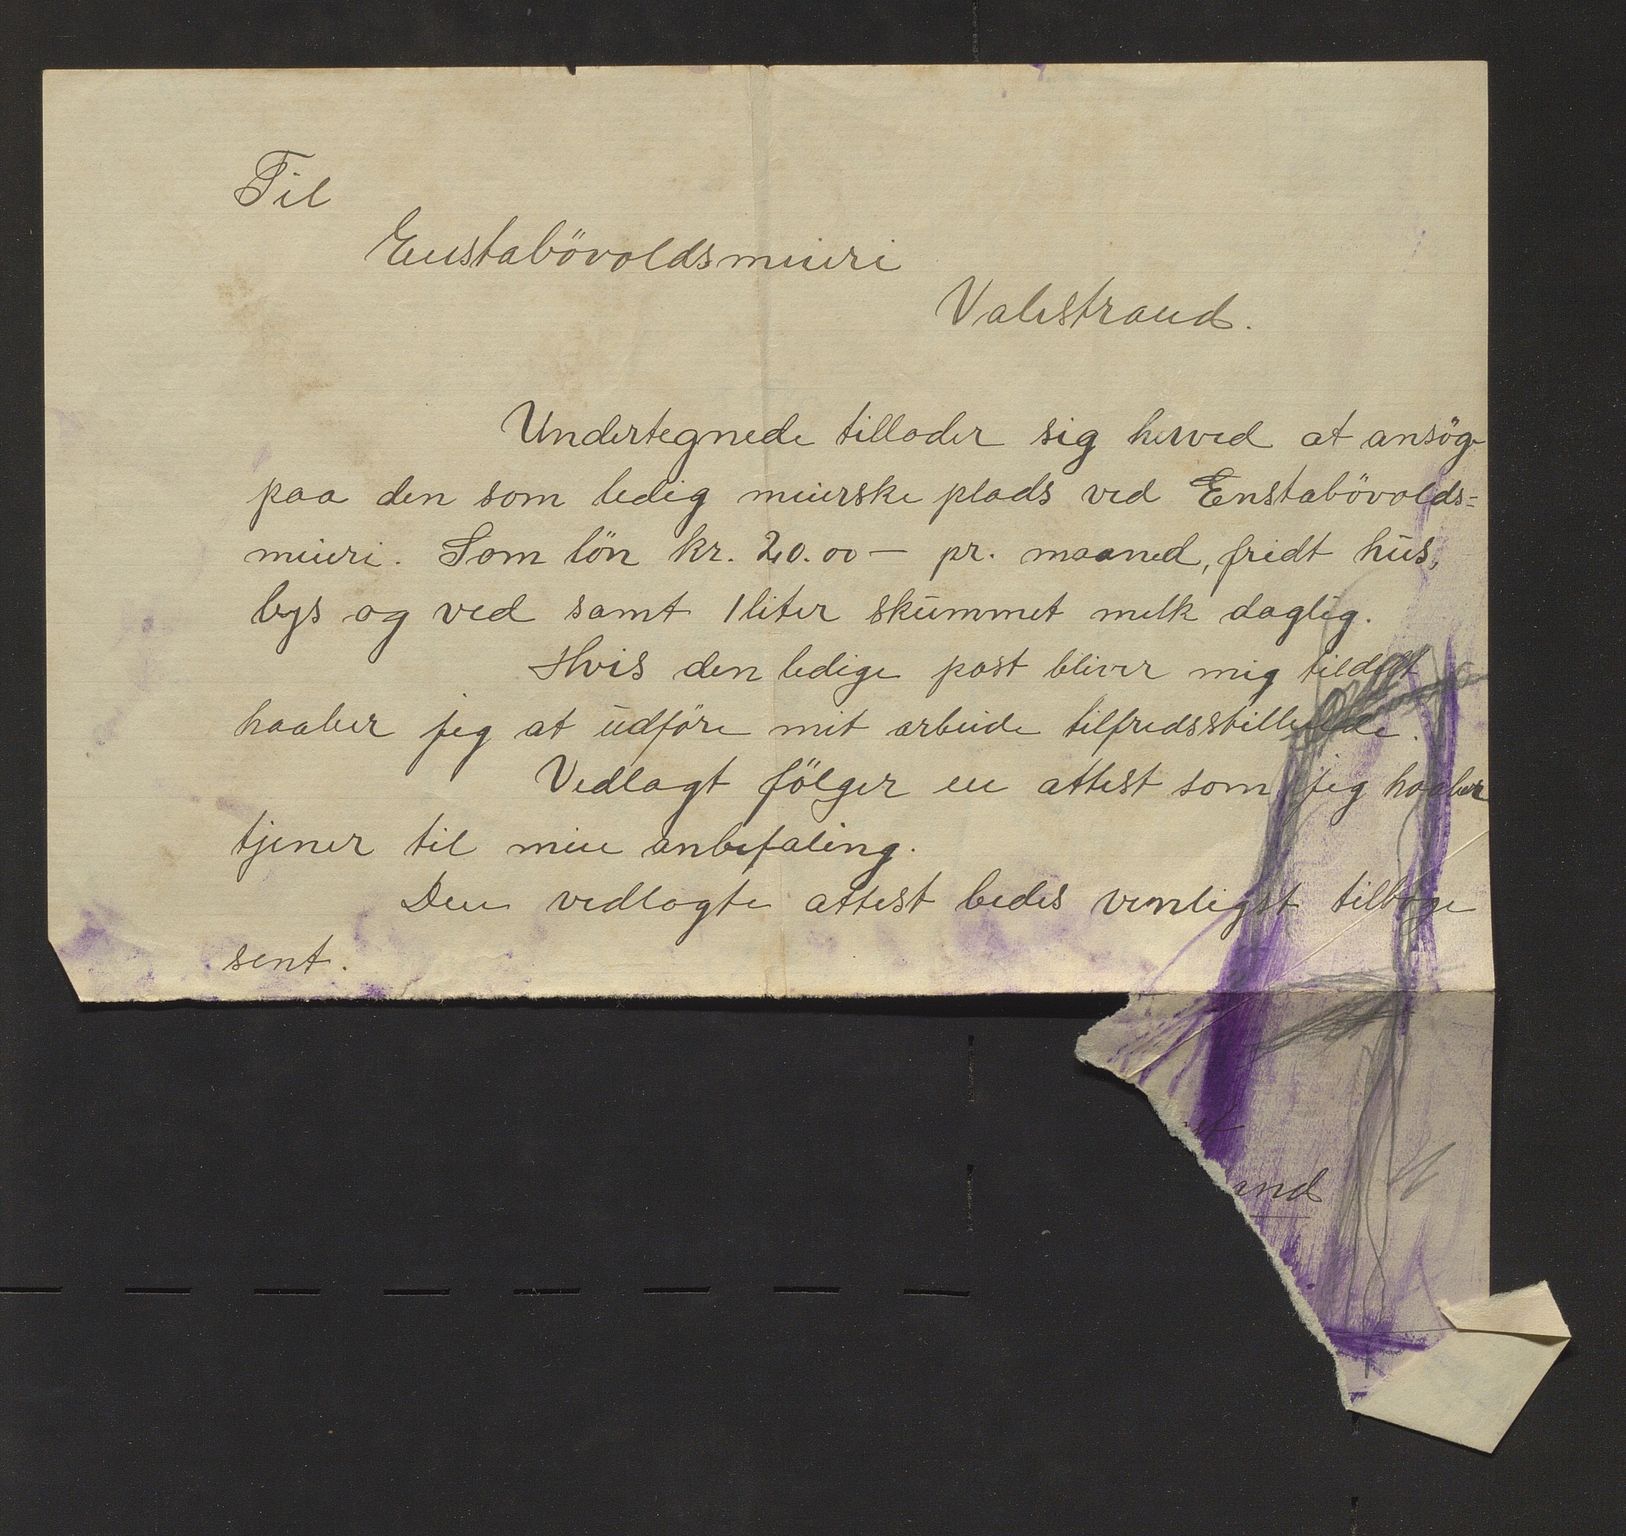 Til
Enstabövoldsmieri
Valestrand.
Undertegnede tillader sig herved at ansöge
paa den som ledig meierske plads ved Enstabövolds=
mieri. Som lön kr. 20.00 — pr. maaned, fridt hus,
lys og ved samt 1 liter skummet melk daglig.
Hvis den ledige post bliver mig tildelt
haaber jeg at udföre mit arbeide tilfredsstillende.
Vedlagt fölger en attest som jeg haaber
tjener til min anbefaling.
Den vedlagte attest bedes venligst tilbage
sent.
and